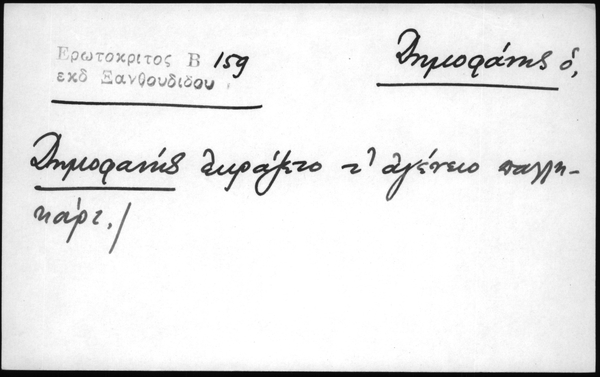 Ερωτοκριτος Β 159
εκδ Ξανθουδιδου
Δημοφάνης ὁ,
Δημοφανής ἐκράζετο τ' ἀγένειο παλλη-
κάρι./